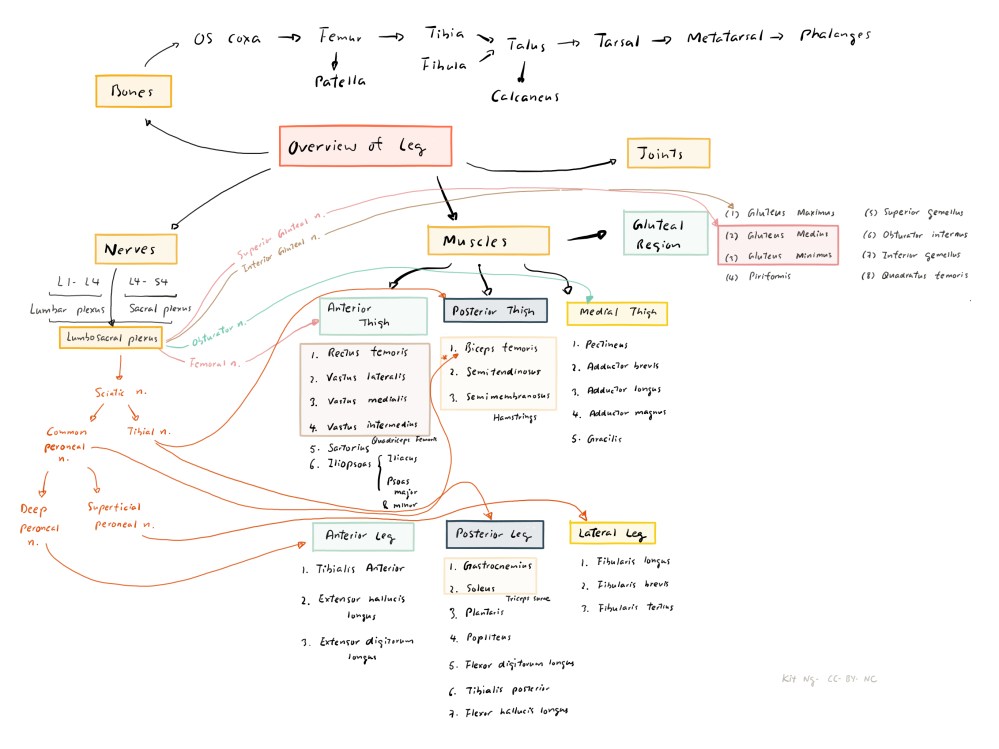 OS coxa → Femur → Tibia Talus → Tarsal → Metatarsal → Phalanges
Fibula
Patella
Calcaneus
Bones
Overview of Leg
Joints
Nerves
L1- L4
L4- S4
Lumbar plexus
Sacral plexus
Lumbosacral plexus
Superior Gluteal n.
Inferior Gluteal n.
Obturator n.
Femoral n.
Sciatic n.
Common
peroneal
n.
Tibial n.
Deep
peroneal
n.
Superficial
peroneal n.
Muscles
Gluteal
Region
(1) Gluteus Maximus
(2) Gluteus Medius
(3) Gluteus Minimus
(4) Piriformis
(5) Superior gemellus
(6) Obturator internus
(7) Inferior gemellus
(8) Quadratus femoris
Anterior
Thigh
1. Rectus femoris
2. Vastus lateralis
3. Vastus medialis
4. Vastus intermedius
Quadriceps Femoris
5. Sartorius
6. Iliopsoas { Iliacus
Psoas
major
& minor
Posterior Thigh
1. Biceps femoris
2. Semitendinosus
3. Semimembranosus
Hamstrings
Medial Thigh
1. Pectineus
2. Adductor brevis
3. Adductor longus
4. Adductor magnus
5. Gracilis
Anterior Leg
1. Tibialis Anterior
2. Extensor hallucis
longus
3. Extensor digitorum
longus
Posterior Leg
1. Gastrocnemius
2. Soleus
Triceps surae
3. Plantaris
4. Popliteus
5. Flexor digitorum longus
6. Tibialis posterior
7. Flexor hallucis longus
Lateral Leg
1. Fibularis longus
2. Fibularis brevis
3. Fibularis tertius
Kit Ng- CC- BY- NC